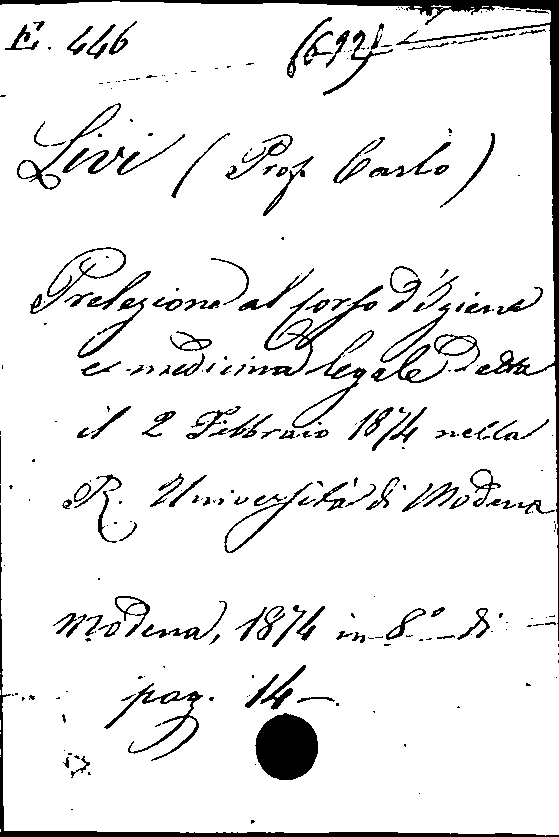 E. 446 (692)
Livi (Prof. Carlo)
Prelezione al corso d'Igiene
e medicina legale detta
il 2 Febbraio 1874 nella
R. Università di Modena
Modena, 1874 in 8º di
pag. 14 –